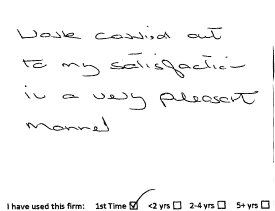 Work carried out
to my satisfaction
in a very pleasant
manner
I have used this firm: 1st Time ☑ <2 yrs ☐ 2-4 yrs ☐ 5+ yrs ☐